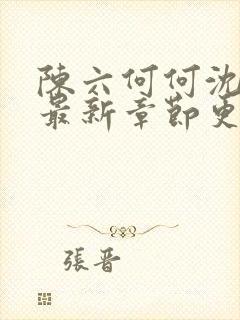 陳六何何沈
最新章節更
張晋